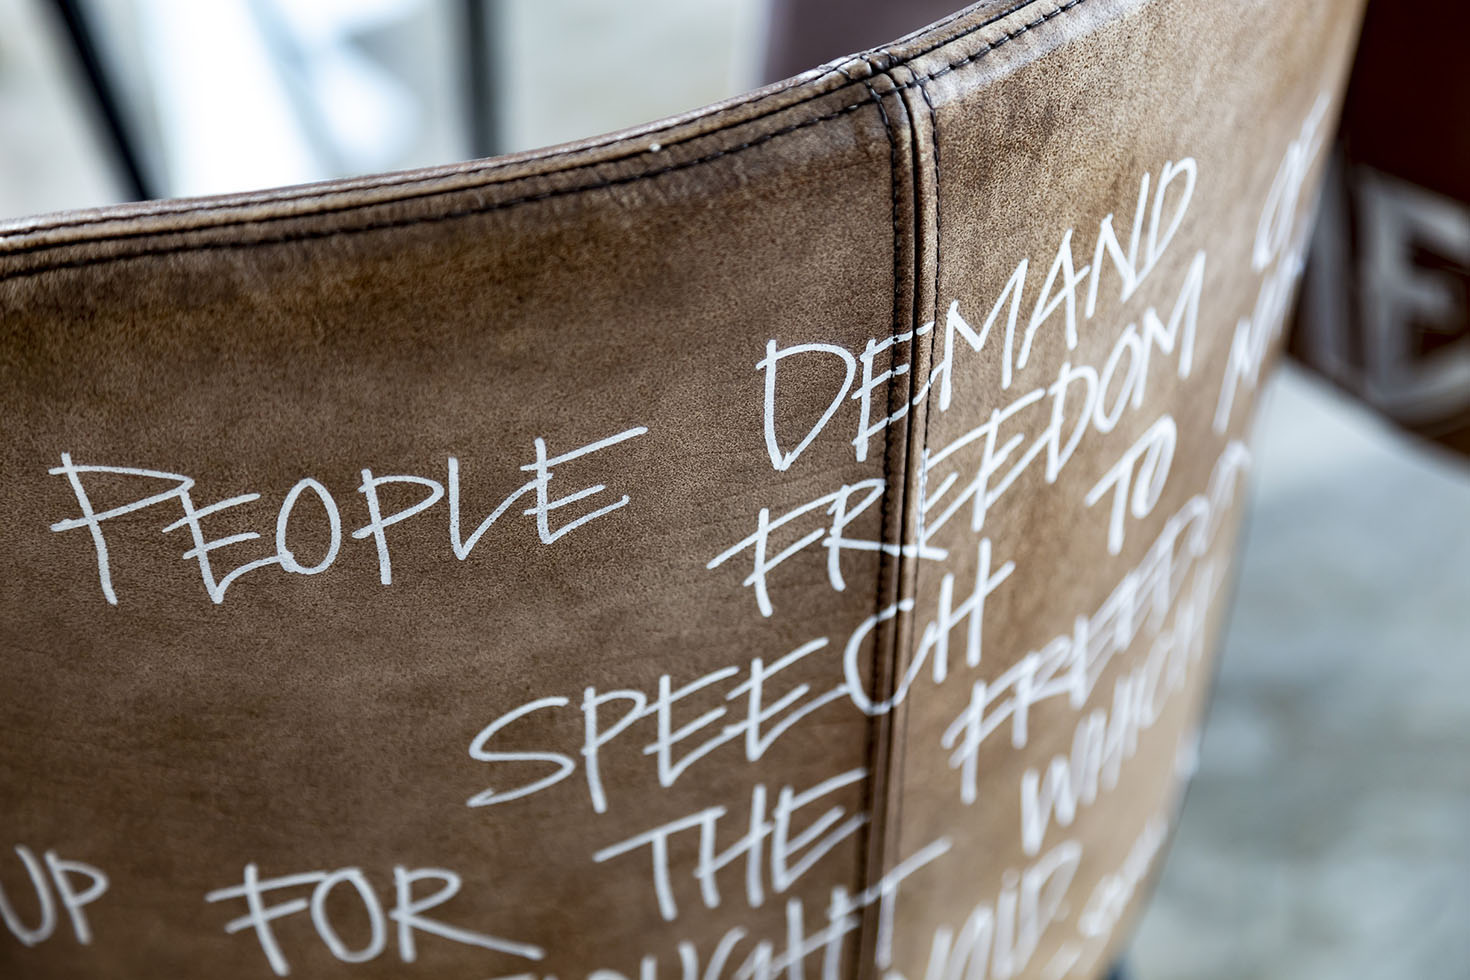 PEOPLE DEMAND
FREEDOM OF
SPEECH TO
UP FOR THE FREEDOM
THOUGHT WHICH